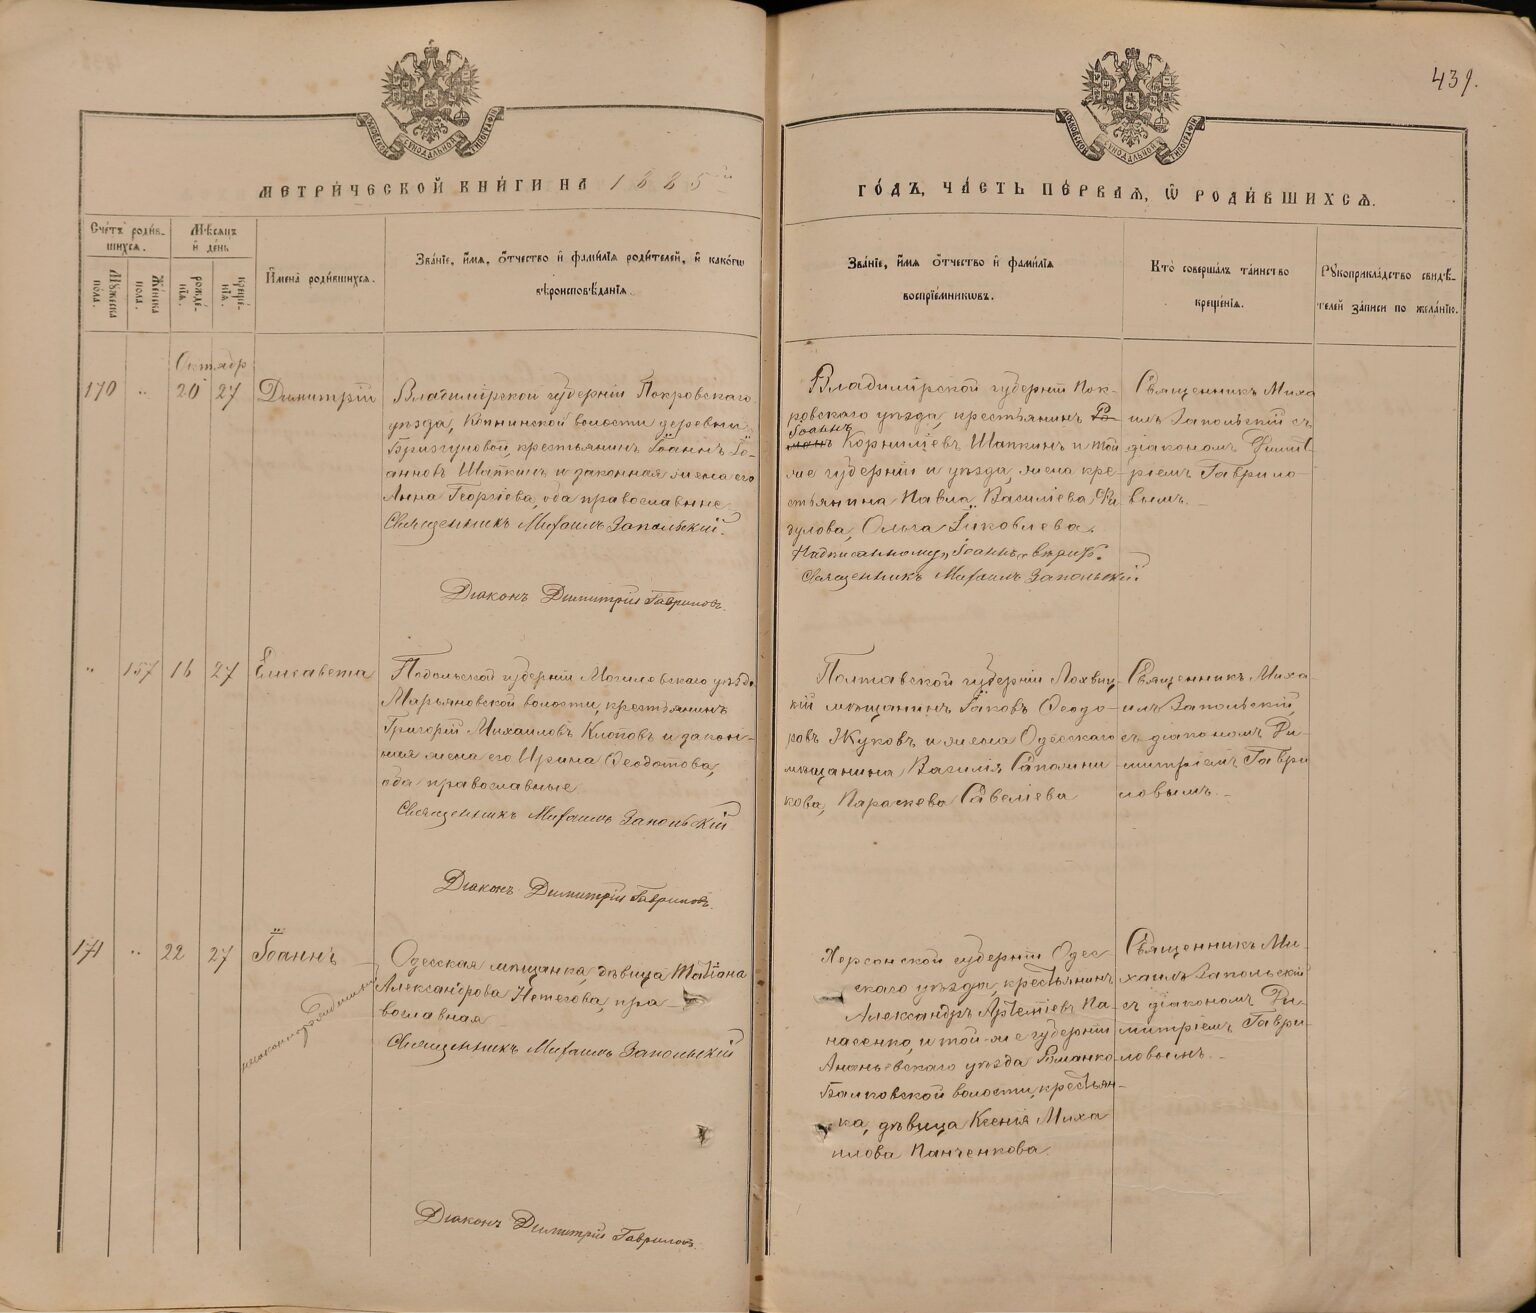 439.
МОСКОВСКОЙ СѴНОДАЛЬНОЙ ТИПОГРАФІИ
МОСКОВСКОЙ СѴНОДАЛЬНОЙ ТИПОГРАФІИ
МЕТРИ́ЧЕСКОЙ КНИ́ГИ НА 1885й
ГО́ДЪ, ЧА́СТЬ ПЕ́РВАѦ, Ѽ РОДИ́ВШИХСѦ.
Сче́тъ роди́в-
шихсѧ.
Мꙋ́жеска
по́ла.
Же́нска
по́ла.
Мѣ́сѧцъ
и҆ де́нь
рожде́-
нїѧ.
креще́-
нїѧ.
И҆мена̀ роди́вшихсѧ.
Зва́нїе, и҆́мѧ, ѻ҆́тчество и҆ фами́лїѧ роди́телей, и҆ како́гѡ
вѣроисповѣ́данїѧ.
Зва́нїе, и҆́мѧ ѻ҆́тчество и҆ фами́лїѧ
воспрїе́мникѡвъ.
Кто̀ соверша́лъ та́инство
креще́нїѧ.
Рꙋкоприкла́дство свидѣ́-
телей за́писи по жела́нїю.
Октябр
170 „ 20 27 Димитрій
Владимірской губерніи Покровскаго
уѣзда, Копнинской волости деревни
крестьянинъ Іоаннъ Іо-
анновъ Шапкинъ и законная жена его
Анна Георгіева, оба православные
Священникъ Михаилъ Запольскій.
Діаконъ Димитрій Гавриловъ.
Владимірской губерніи Пок-
ровскаго уѣзда, крестьянинъ Ро-
Іоаннъ
манъ Корниліевъ Шапкинъ и той
же губерніи и уѣзда, жена кре-
стьянина Павла Василіева Фи-
гулова, Ольга Іаковлева.
Надписанному „Іоаннъ„ вѣрить.
Священникъ Михаилъ Запольскій
Священникъ Миха
илъ Запольскій съ
діакономъ Димит
ріемъ Гаврило-
вымъ.
„ 157 16 27 Елисавета
Подольской губерніи Могилевскаго уѣзда
Марьяновской волости, крестьянинъ
Григорій Михаиловъ Клоповъ и закон-
ная жена его Ирина Ѳеодотова,
оба православные
Священникъ Михаилъ Запольскій
Діаконъ Димитрій Гавриловъ.
Полтавской губерніи Лохвиц-
кій мѣщанинъ Іаковъ Ѳеодо-
ровъ Жуковъ и жена Одесскаго
мѣщанина Василія Сапожни
кова, Параскева Савеліева
Священникъ Миха-
илъ Запольскій,
съ діакономъ Ди-
митріемъ Гаври
ловымъ.
171 „ 22 27 Іоаннъ
незаконнорожденный
Одесская мѣщанка, дѣвица Татіана
Александрова Нетегова, пра-
вославная
Священникъ Михаилъ Запольскій
Діаконъ Димитрій Гавриловъ.
Херсонской губерніи Одес-
скаго уѣзда, крестьянинъ
Александръ Артеміевъ Па-
насенко, и той-же губерніи
Ананьевскаго уѣзда Романко
Балковской волости, крестьян-
ка, дѣвица Ксенія Миха
илова Панченкова.
Священникъ Ми-
хаилъ Запольскій
съ діакономъ Ди-
митріемъ Гаври-
ловымъ.